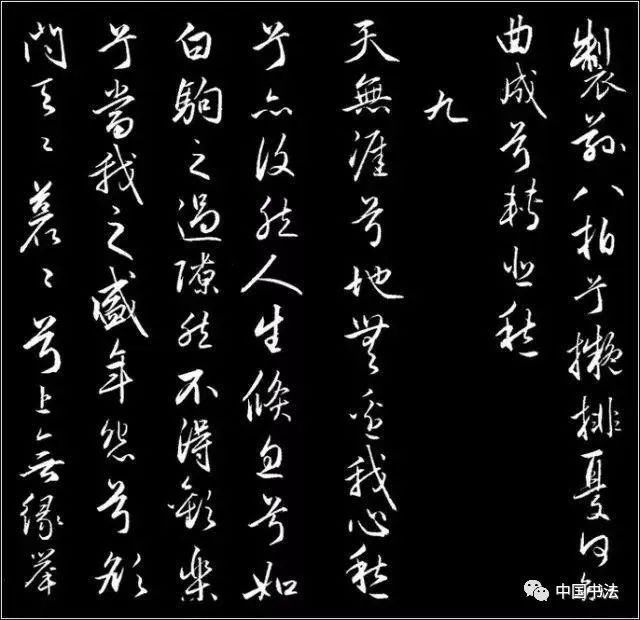 製茲八拍兮擬排憂何
曲成兮轉悲愁
九
天無涯兮地無邊我心愁
兮亦復然人生倏忽兮如
白駒之過隙然不得歡樂
兮當我之盛年怨兮欲
問天〻蒼〻兮上無緣舉
中国书法